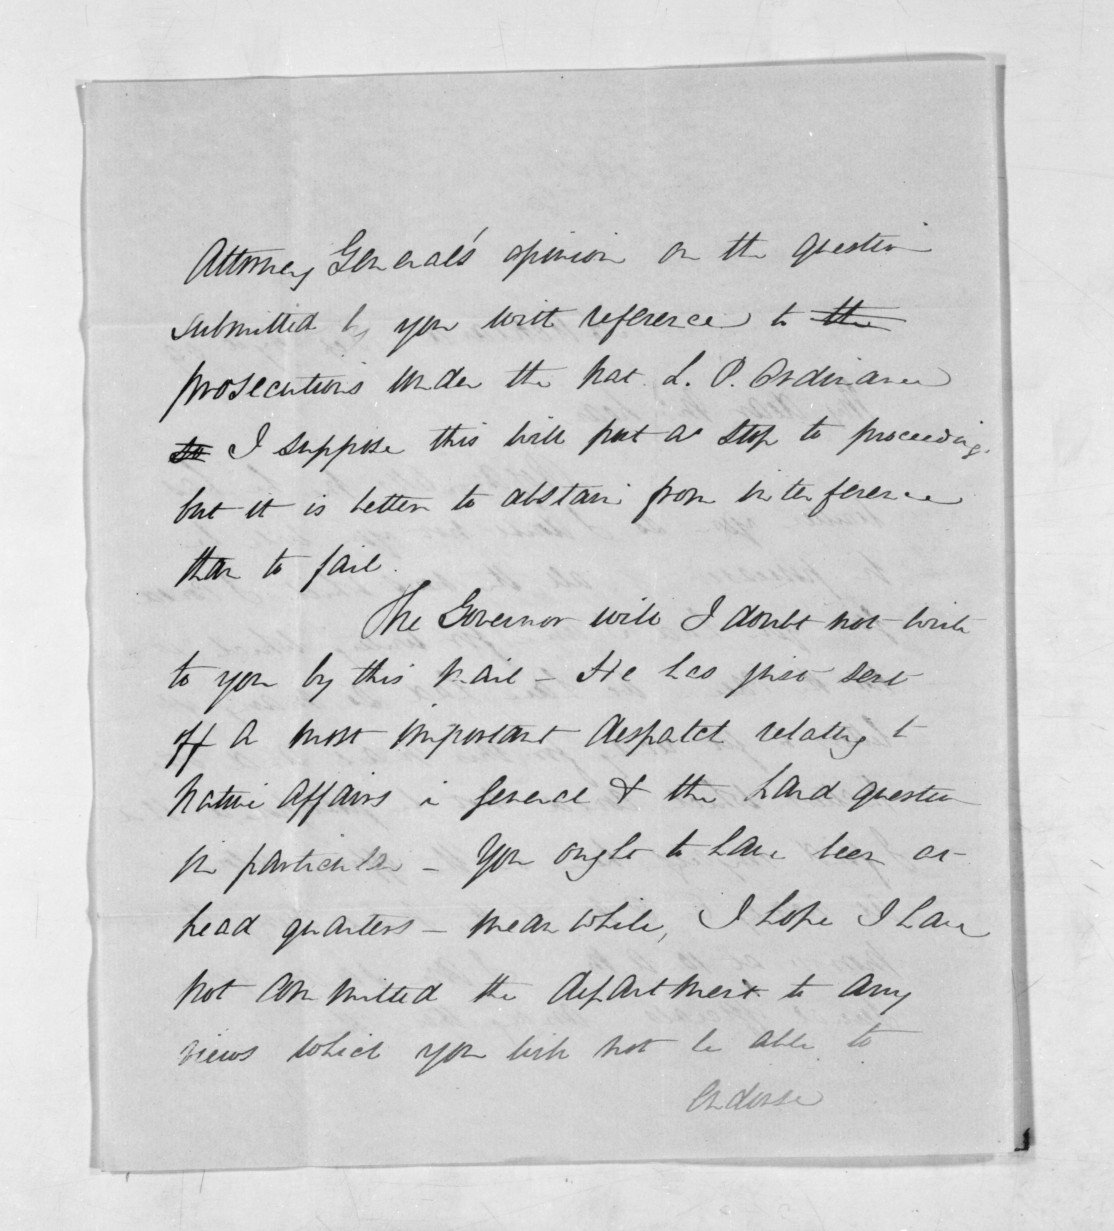 Attorney General's opinion on the question
submitted by you with reference to the
prosecutions under the Nat. L. P. Ordinance
so I suppose this will put a stop to proceedings.
but it is better to abstain from interference
than to fail.
The Governor will I doubt not write
to you by this mail – He has just sent
off a most important despatch relating to
Native Affairs in general & the Land question
in particular – You ought to have been at
head quarters – meanwhile, I hope I have
not committed the department to any
views which you will not be able to
endorse